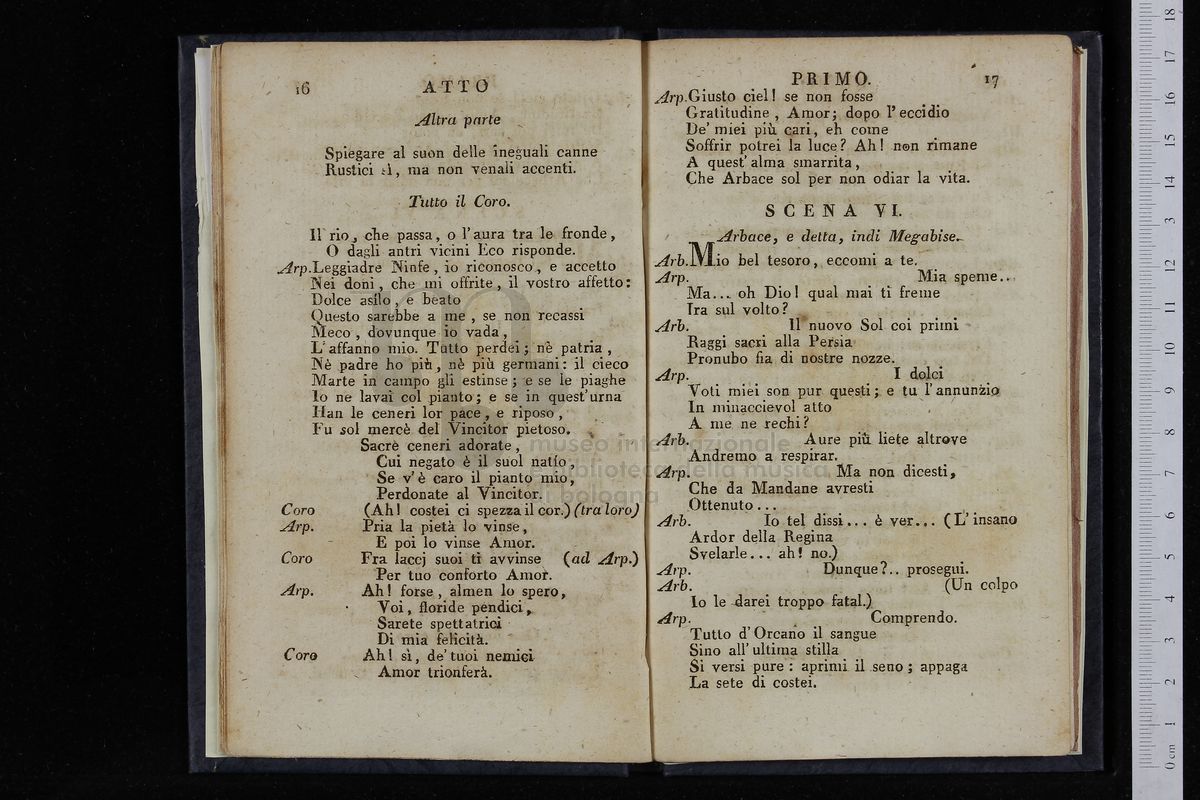 16 ATTO
Altra parte
Spiegare al suon delle ineguali canne
Rustici sì, ma non venali accenti.
Tutto il Coro.
Il rio, che passa, o l'aura tra le fronde,
O dagli antri vicini Eco risponde.
Arp. Leggiadre Ninfe, io riconosco, e accetto
Nei doni, che mi offrite, il vostro affetto:
Dolce asilo, e beato
Questo sarebbe a me, se non recassi
Meco, dovunque io vada,
L'affanno mio. Tutto perdei; nè patria,
Nè padre ho più, nè più germani: il cieco
Marte in campo gli estinse; e se le piaghe
Io ne lavai col pianto; e se in quest'urna
Han le ceneri lor pace, e riposo,
Fu sol mercè del Vincitor pietoso.
Sacrè ceneri adorate,
Cui negato è il suol natío,
Se v'è caro il pianto mio,
Perdonate al Vincitor.
Coro (Ah! costei ci spezza il cor.) (tra loro)
Arp. Pria la pietà lo vinse,
E poi lo vinse Amor.
Coro Fra laccj suoi ti avvinse (ad Arp.)
Per tuo conforto Amor.
Arp. Ah! forse, almen lo spero,
Voi, floride pendici,
Sarete spettatrici
Di mia felicità.
Coro Ah! sì, de' tuoi nemici
Amor trionferà.
PRIMO. 17
Arp. Giusto ciel! se non fosse
Gratitudine, Amor; dopo l'eccidio
De' miei più cari, eh come
Soffrir potrei la luce? Ah! non rimane
A quest'alma smarrita,
Che Arbace sol per non odiar la vita.
SCENA VI.
Arbace, e detta, indi Megabise.
Arb. Mio bel tesoro, eccomi a te.
Arp. Mia speme..
Ma... oh Dio! qual mai ti freme
Ira sul volto?
Arb. Il nuovo Sol coi primi
Raggi sacri alla Persia
Pronubo fia di nostre nozze.
Arp. I dolci
Voti miei son pur questi; e tu l'annunzio
In minaccievol atto
A me ne rechi?
Arb. Aure più liete altrove
Andremo a respirar.
Arp. Ma non dicesti,
Che da Mandane avresti
Ottenuto...
Arb. Io tel dissi... è ver... (L'insano
Ardor della Regina
Svelarle... ah! no.)
Arp. Dunque?.. prosegui.
Arb. (Un colpo
Io le darei troppo fatal.)
Arp. Comprendo.
Tutto d'Orcano il sangue
Sino all'ultima stilla
Si versi pure: aprimi il seno; appaga
La sete di costei.
museo internazionale
e biblioteca della musica
di bologna
0 cm 1 2 3 4 5 6 7 8 9 10 11 12 13 14 15 16 17 18